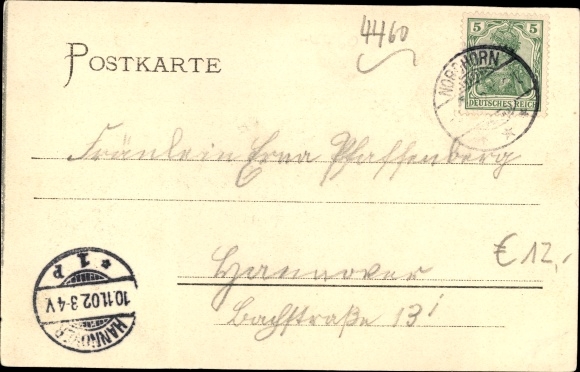 4460
POSTKARTE
5 5
NORDHORN
DEUTSCHES REICH
Fräulein Erna Pfaffenberg
Hannover
Bachstraße 13 i
€ 12,-
* 1 P
10.11.02.3-4V.
HANNOVER